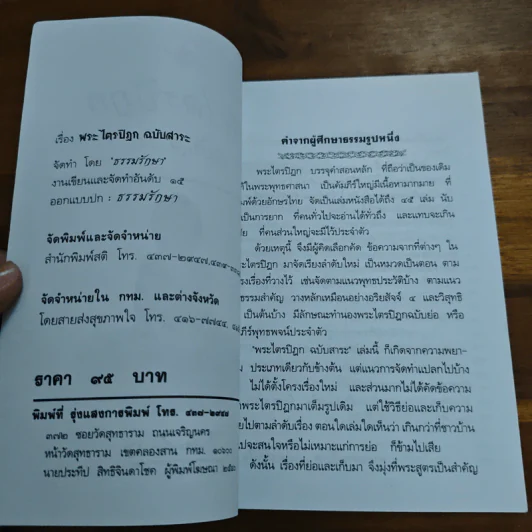 เรื่อง พระไตรปิฎก ฉบับสาระ
จัดทำ โดย 'ธรรมรักษา'
งานเขียนและจัดทำอันดับ ๑๕
ออกแบบปก : ธรรมรักษา
จัดพิมพ์และจัดจำหน่าย
สำนักพิมพ์สติ โทร. ๔๓๗-๒๙๔๗,
จัดจำหน่ายใน กทม. และต่างจังหวัด
โดยสายส่งสุขภาพใจ โทร. ๔๑๖-๗๗๔๔,
ราคา ๙๕ บาท
พิมพ์ที่ รุ่งแสงการพิมพ์ โทร. ๔๓๗-๒๙๔๗
๓๗๒ ซอยวัดสุทธาราม ถนนเจริญนคร
หน้าวัดสุทธาราม เขตคลองสาน กทม. ๑๐๖๐๐
นายประทีป สิทธิจินดาโชค ผู้พิมพ์โฆษณา
คำจากผู้ศึกษาธรรมรูปหนึ่ง
พระไตรปิฎก บรรจุคำสอนหลัก ที่ถือว่าเป็นของเดิม
ในพระพุทธศาสนา เป็นคัมภีร์ใหญ่มีเนื้อหามากมาย ที่
พิมพ์ด้วยอักษรไทย จัดเป็นเล่มหนังสือได้ถึง ๔๕ เล่ม นับ
เป็นการยาก ที่คนทั่วไปจะอ่านได้ทั่วถึง และแทบจะเกิน
ที่คนส่วนใหญ่จะมีไว้ประจำตัว
ด้วยเหตุนี้ จึงมีผู้คิดเลือกคัด ข้อความจากที่ต่างๆ ใน
พระไตรปิฎก มาจัดเรียงลำดับใหม่ เป็นหมวดเป็นตอน ตาม
โครงเรื่องที่วางไว้ เช่นจัดตามแนวพุทธประวัติบ้าง ตามแนว
ธรรมสำคัญ วางหลักเหมือนอย่างอริยสัจจ์ ๔ และวิสุทธิ
เป็นต้นบ้าง มีลักษณะทำนองพระไตรปิฎกฉบับย่อ หรือ
คัมภีร์พุทธพจน์ประจำตัว
"พระไตรปิฎก ฉบับสาระ" เล่มนี้ ก็เกิดจากความพยา-
ประเภทเดียวกับข้างต้น แต่แนวการจัดทำแปลกไปบ้าง
ไม่ได้ตั้งโครงเรื่องใหม่ และส่วนมากไม่ได้คัดข้อความ
พระไตรปิฎกมาเต็มรูปเดิม แต่ใช้วิธีย่อและเก็บความ
ไปตามลำดับเรื่อง ตอนใดเล่มใดเห็นว่า เกินกว่าที่ชาวบ้าน
จะสนใจหรือไม่เหมาะแก่การย่อ ก็ข้ามไปเสีย
ดังนั้น เรื่องที่ย่อและเก็บมา จึงมุ่งที่พระสูตรเป็นสำคัญ